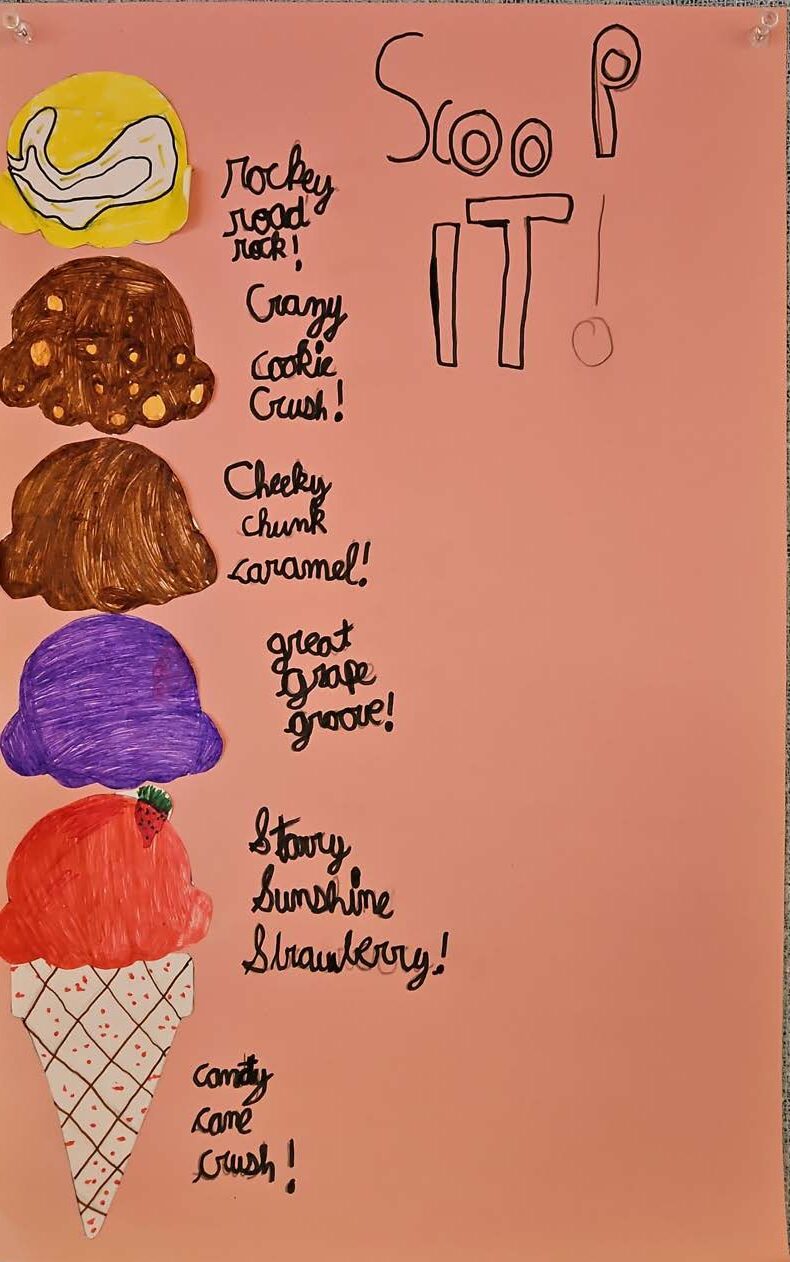 Scoop
IT!
rockey
road
rock!
Crazy
cookie
Crush!
Cheeky
chunk
caramel!
great
grape
groove!
Starry
Sunshine
Strawberry!
candy
cane
crush!